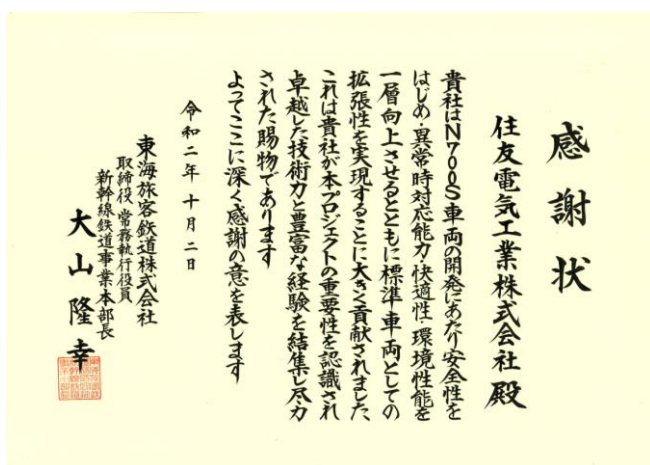 感謝状
住友電気工業株式会社殿
貴社はN700S車両の開発にあたり安全性を
はじめ・異常時対応能力・快適性・環境性能を
一層向上させるとともに標準車両としての
拡張性を実現することに大きく貢献されました、
これは貴社が本プロジェクトの重要性を認識され
卓越した技術力と豊富な経験を結集し尽力
された賜物であります
よってここに深く感謝の意を表します
令和二年十月二日
東海旅客鉄道株式会社
取締役 常務執行役員
新幹線鉄道事業本部長
大山隆幸